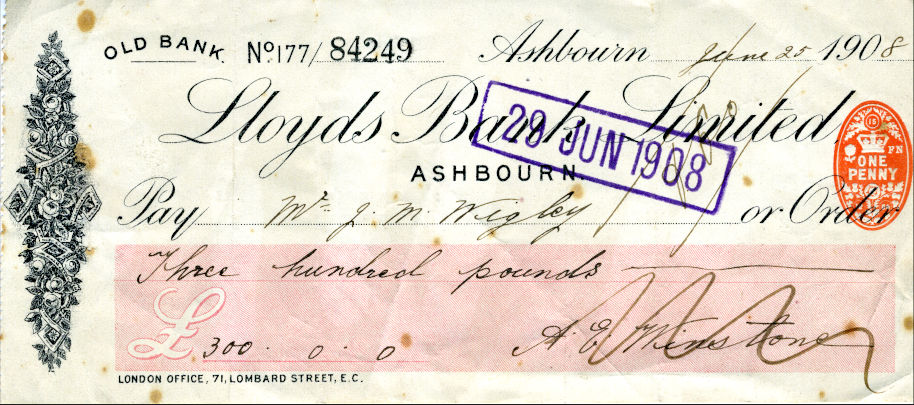 OLD BANK. No. 177/ 84249 Ashbourn June 25 1908
Lloyds Bank Limited,
29 JUN 1908
ASHBOURN.
15
FN
ONE
PENNY
Pay Mr. J. M. Wigley or Order
Three hundred pounds
£ 300. 0. 0 A. E. Winstone
LONDON OFFICE, 71, LOMBARD STREET, E.C.